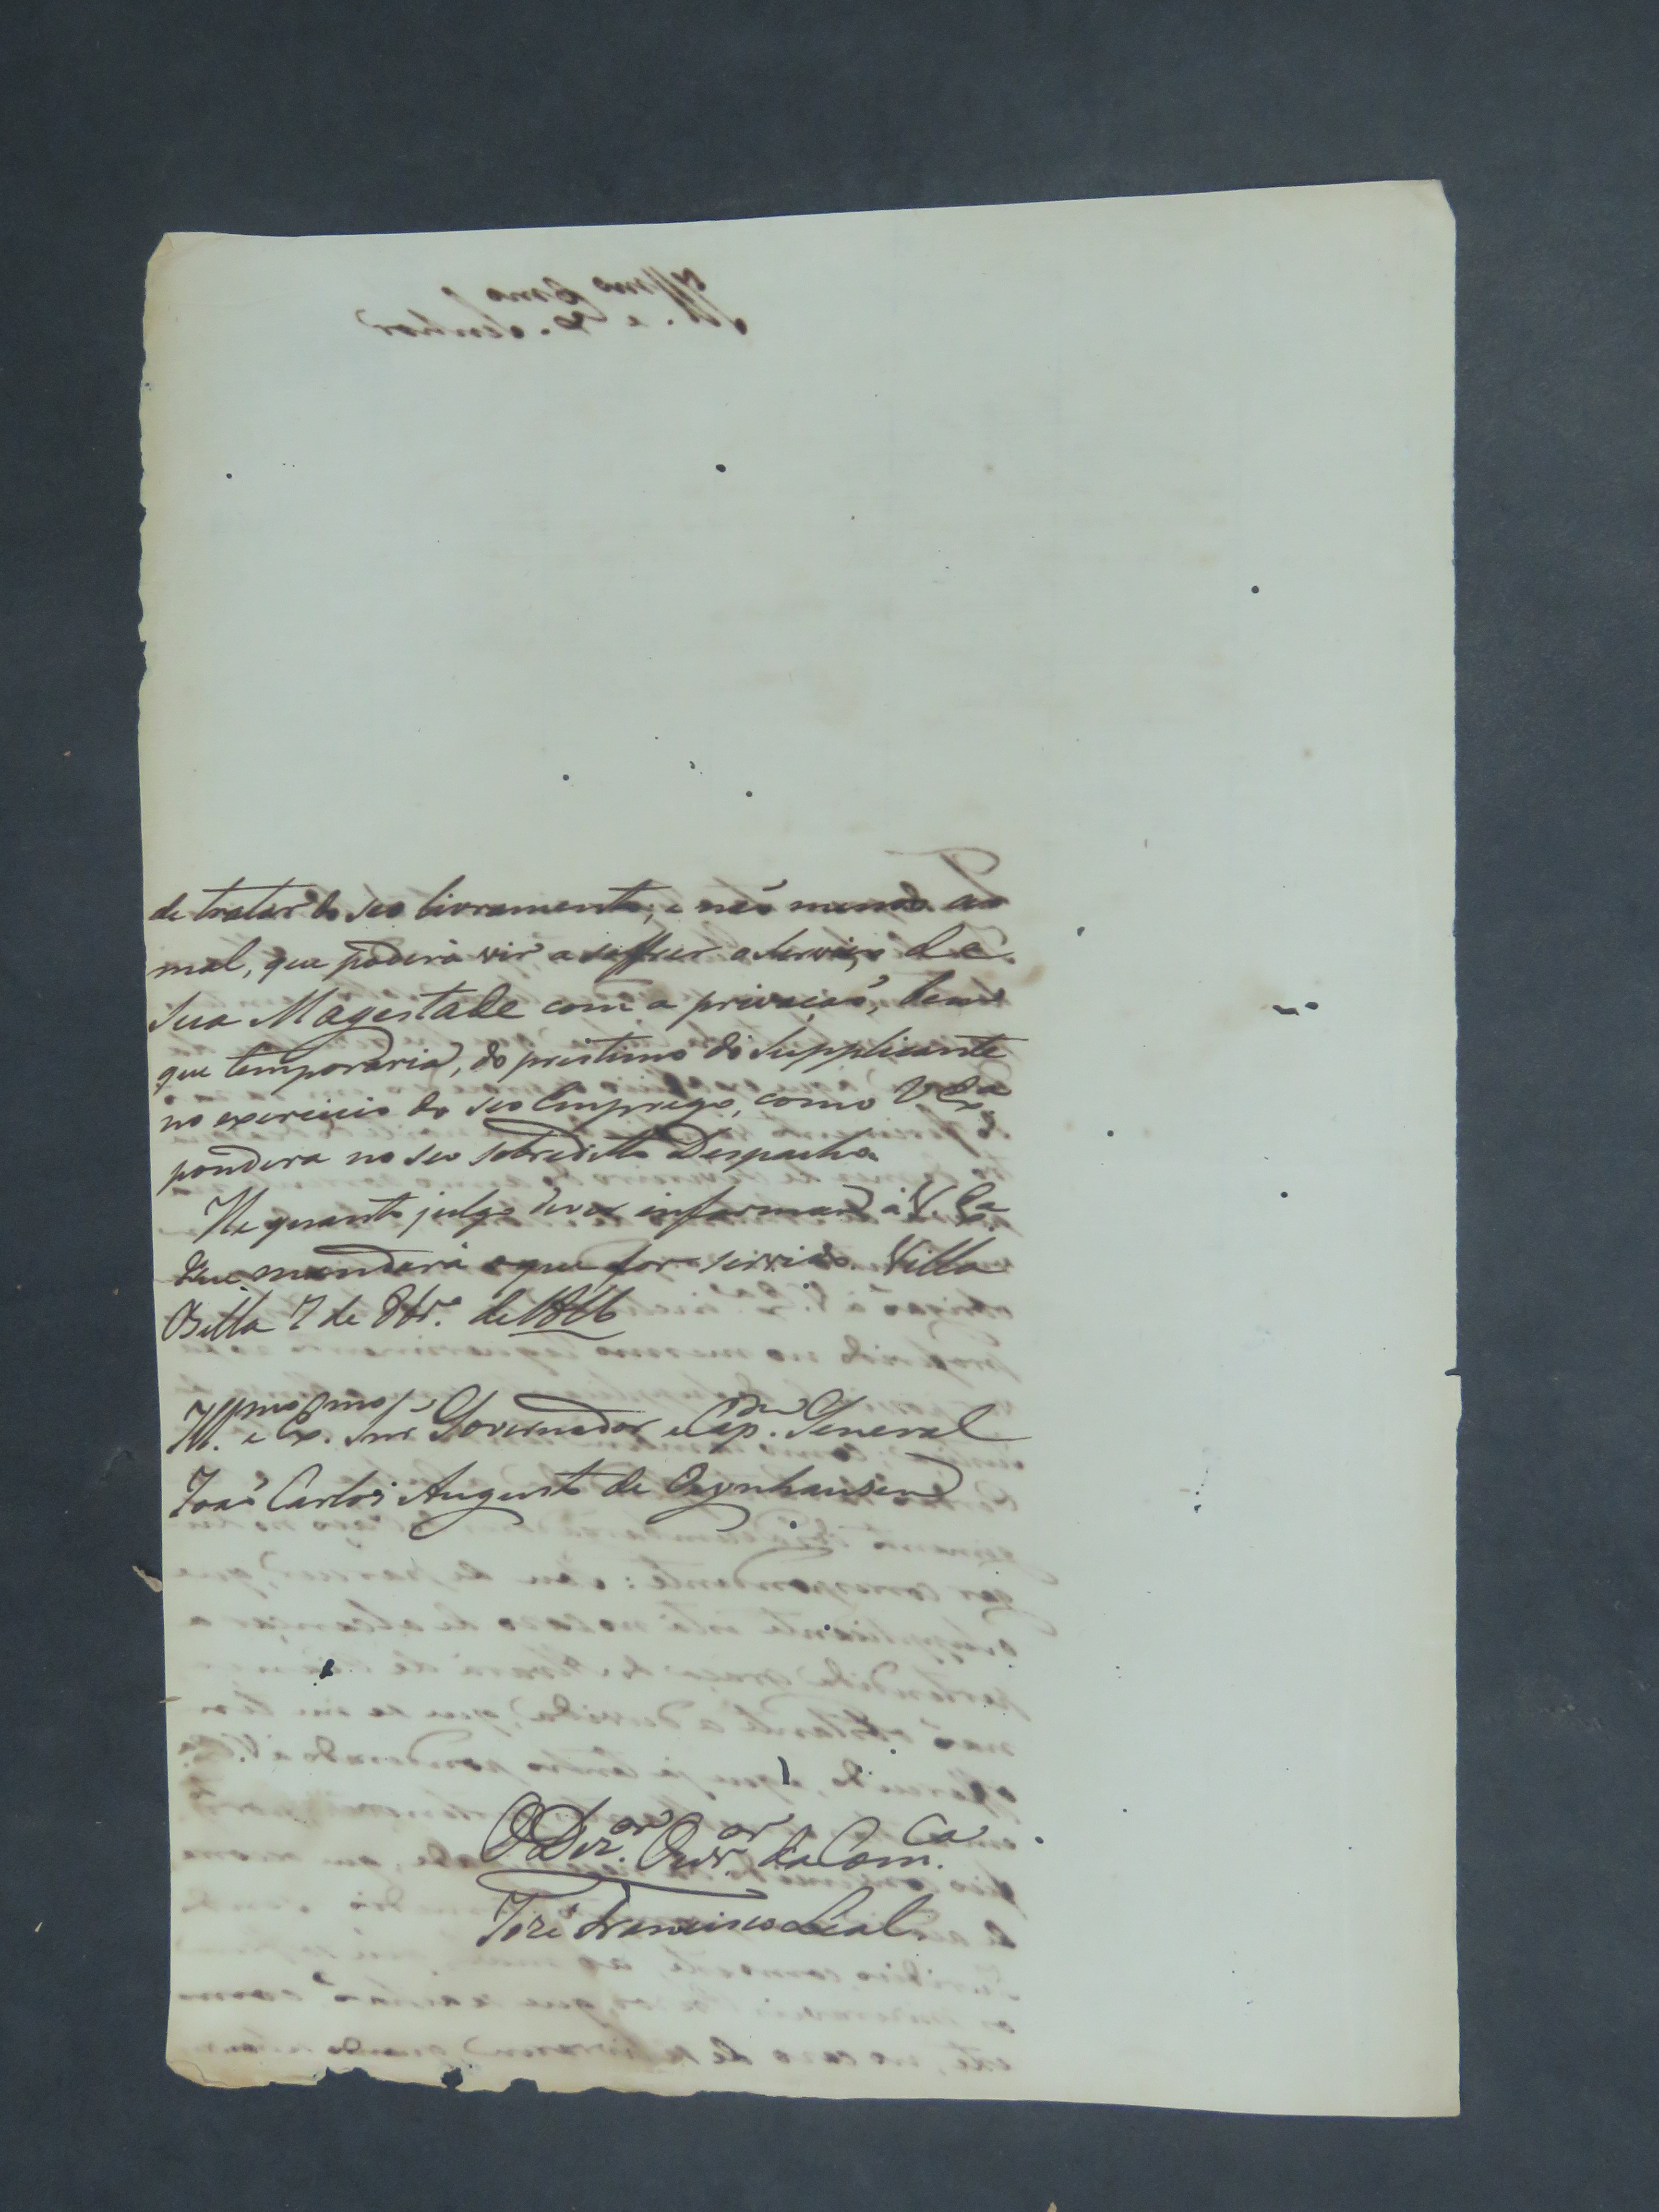 de tratar do seo livramento; e naõ menos ao
mal, que poderá vir a soffrer o serviço de
Sua Magestade com a privaçaõ, bem
que temporaria, do prestimo do Supplicante
no exercicio do seo Emprego, como V. Ex.ª
pondera no seo sobreditto Despacho.
He quanto julgo dever informar à V. Ex.ª
Que mandará o que for servido. Villa
Bella 7 de 8br.º de 1816
Ill.mo e Ex.mo Snr Governador e Cap.am General
Joaõ Carlos Augusto de Oeynhausen
O Dez.or Ouv.or da Com.ca
José Francisco Leal.